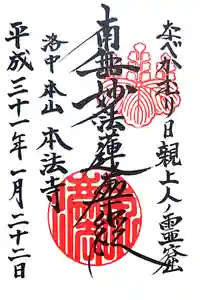 なべかむり日親上人霊窟
南無妙法蓮華経
洛中本山 本法寺
平成三十一年一月二十二日